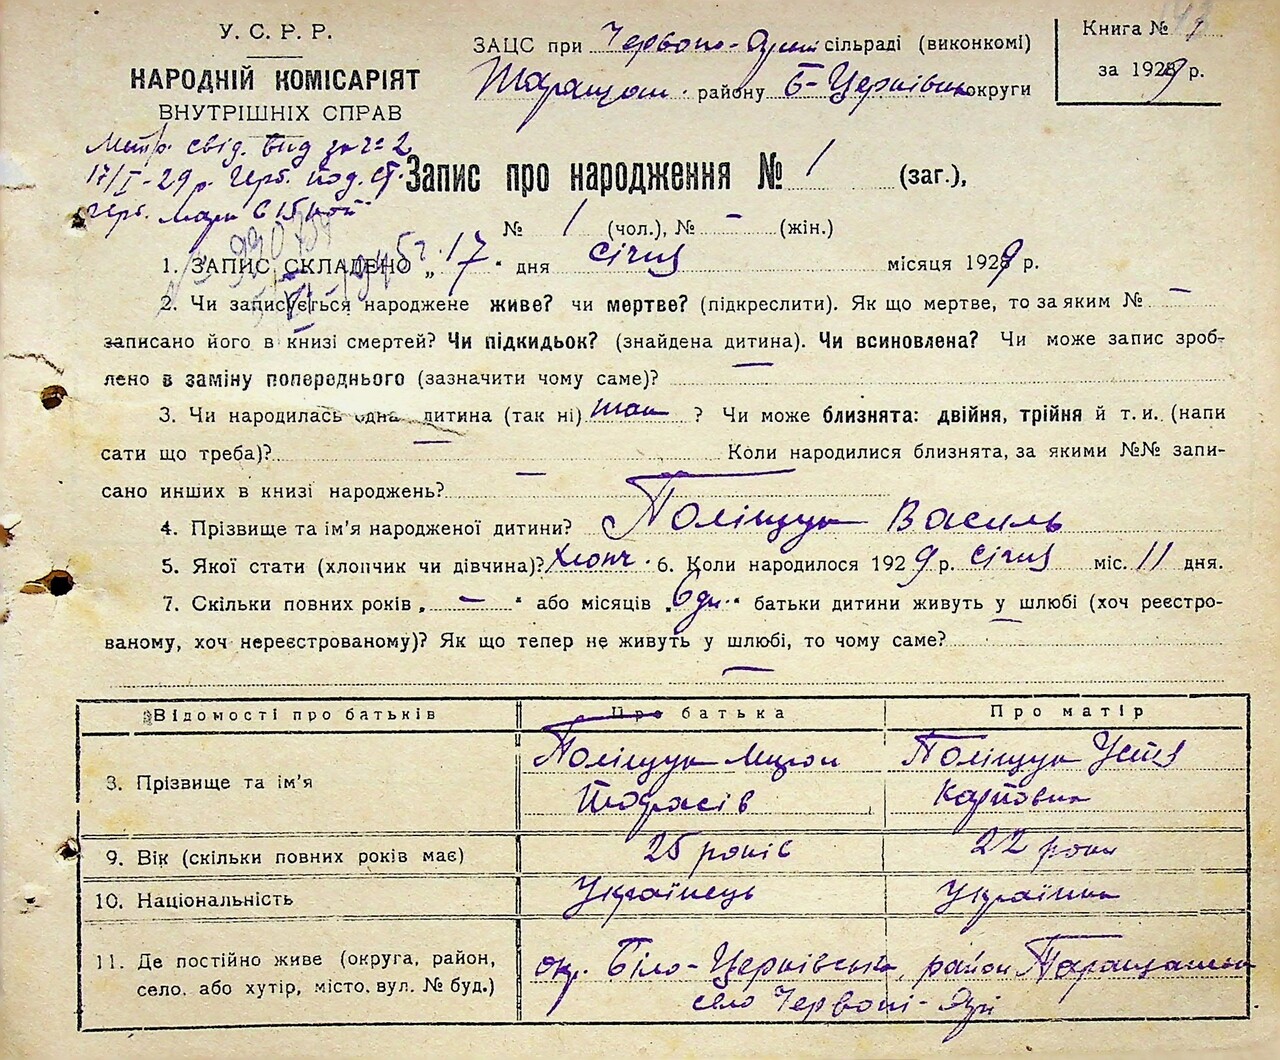 У. С. Р. Р.
НАРОДНІЙ КОМІСАРІЯТ
ВНУТРІШНІХ СПРАВ
ЗАЦС при Червоно-Ярській сільраді (виконкомі)
Таращан. району Б-Церківськ округи
Книга № 1
за 1929 р.
Метр. свід. вид за ч= 2
17/I-29 р. Герб. под. ст.
герб. марк 6 15 коп
Запис про народження № 1 (заг.),
№ 1 (чол.), № – (жін.)
1. ЗАПИС СКЛАДЕНО „ 17 “ дня січня місяця 1929 р.
2. Чи записується народжене живе? чи мертве? (підкреслити). Як що мертве, то за яким № –
записано його в книзі смертей? Чи підкидьок? (знайдена дитина). Чи всиновлена? Чи може запис зроб-
лено в заміну попереднього (зазначити чому саме)? –
3. Чи народилась одна дитина (так ні) так ? Чи може близнята: двійня, трійня й т. и. (напи
сати що треба)? – Коли народилися близнята, за якими №№ запи-
сано инших в книзі народжень? –
4. Прізвище та ім’я народженої дитини? Поліщук Василь
5. Якої стати (хлопчик чи дівчина)? Хлопч. 6. Коли народилося 1929 р. січня міс. 11 дня.
7. Скільки повних років „ – “ або місяців „ 6 дн. “ батьки дитини живуть у шлюбі (хоч реєстро-
ваному, хоч нереєстрованому)? Як що тепер не живуть у шлюбі, то чому саме? –
Відомості про батьків Про батька Про матір
8. Прізвище та ім’я Поліщук Мирон Тарасів Поліщук Устя Карповна
9. Вік (скільки повних років має) 25 років 22 роки
10. Національність Українець Українка
11. Де постійно живе (округа, район, окр. Біло-Церківська, район Таращанськ
село. або хутір, місто. вул. № буд.) село Червоні-Яри